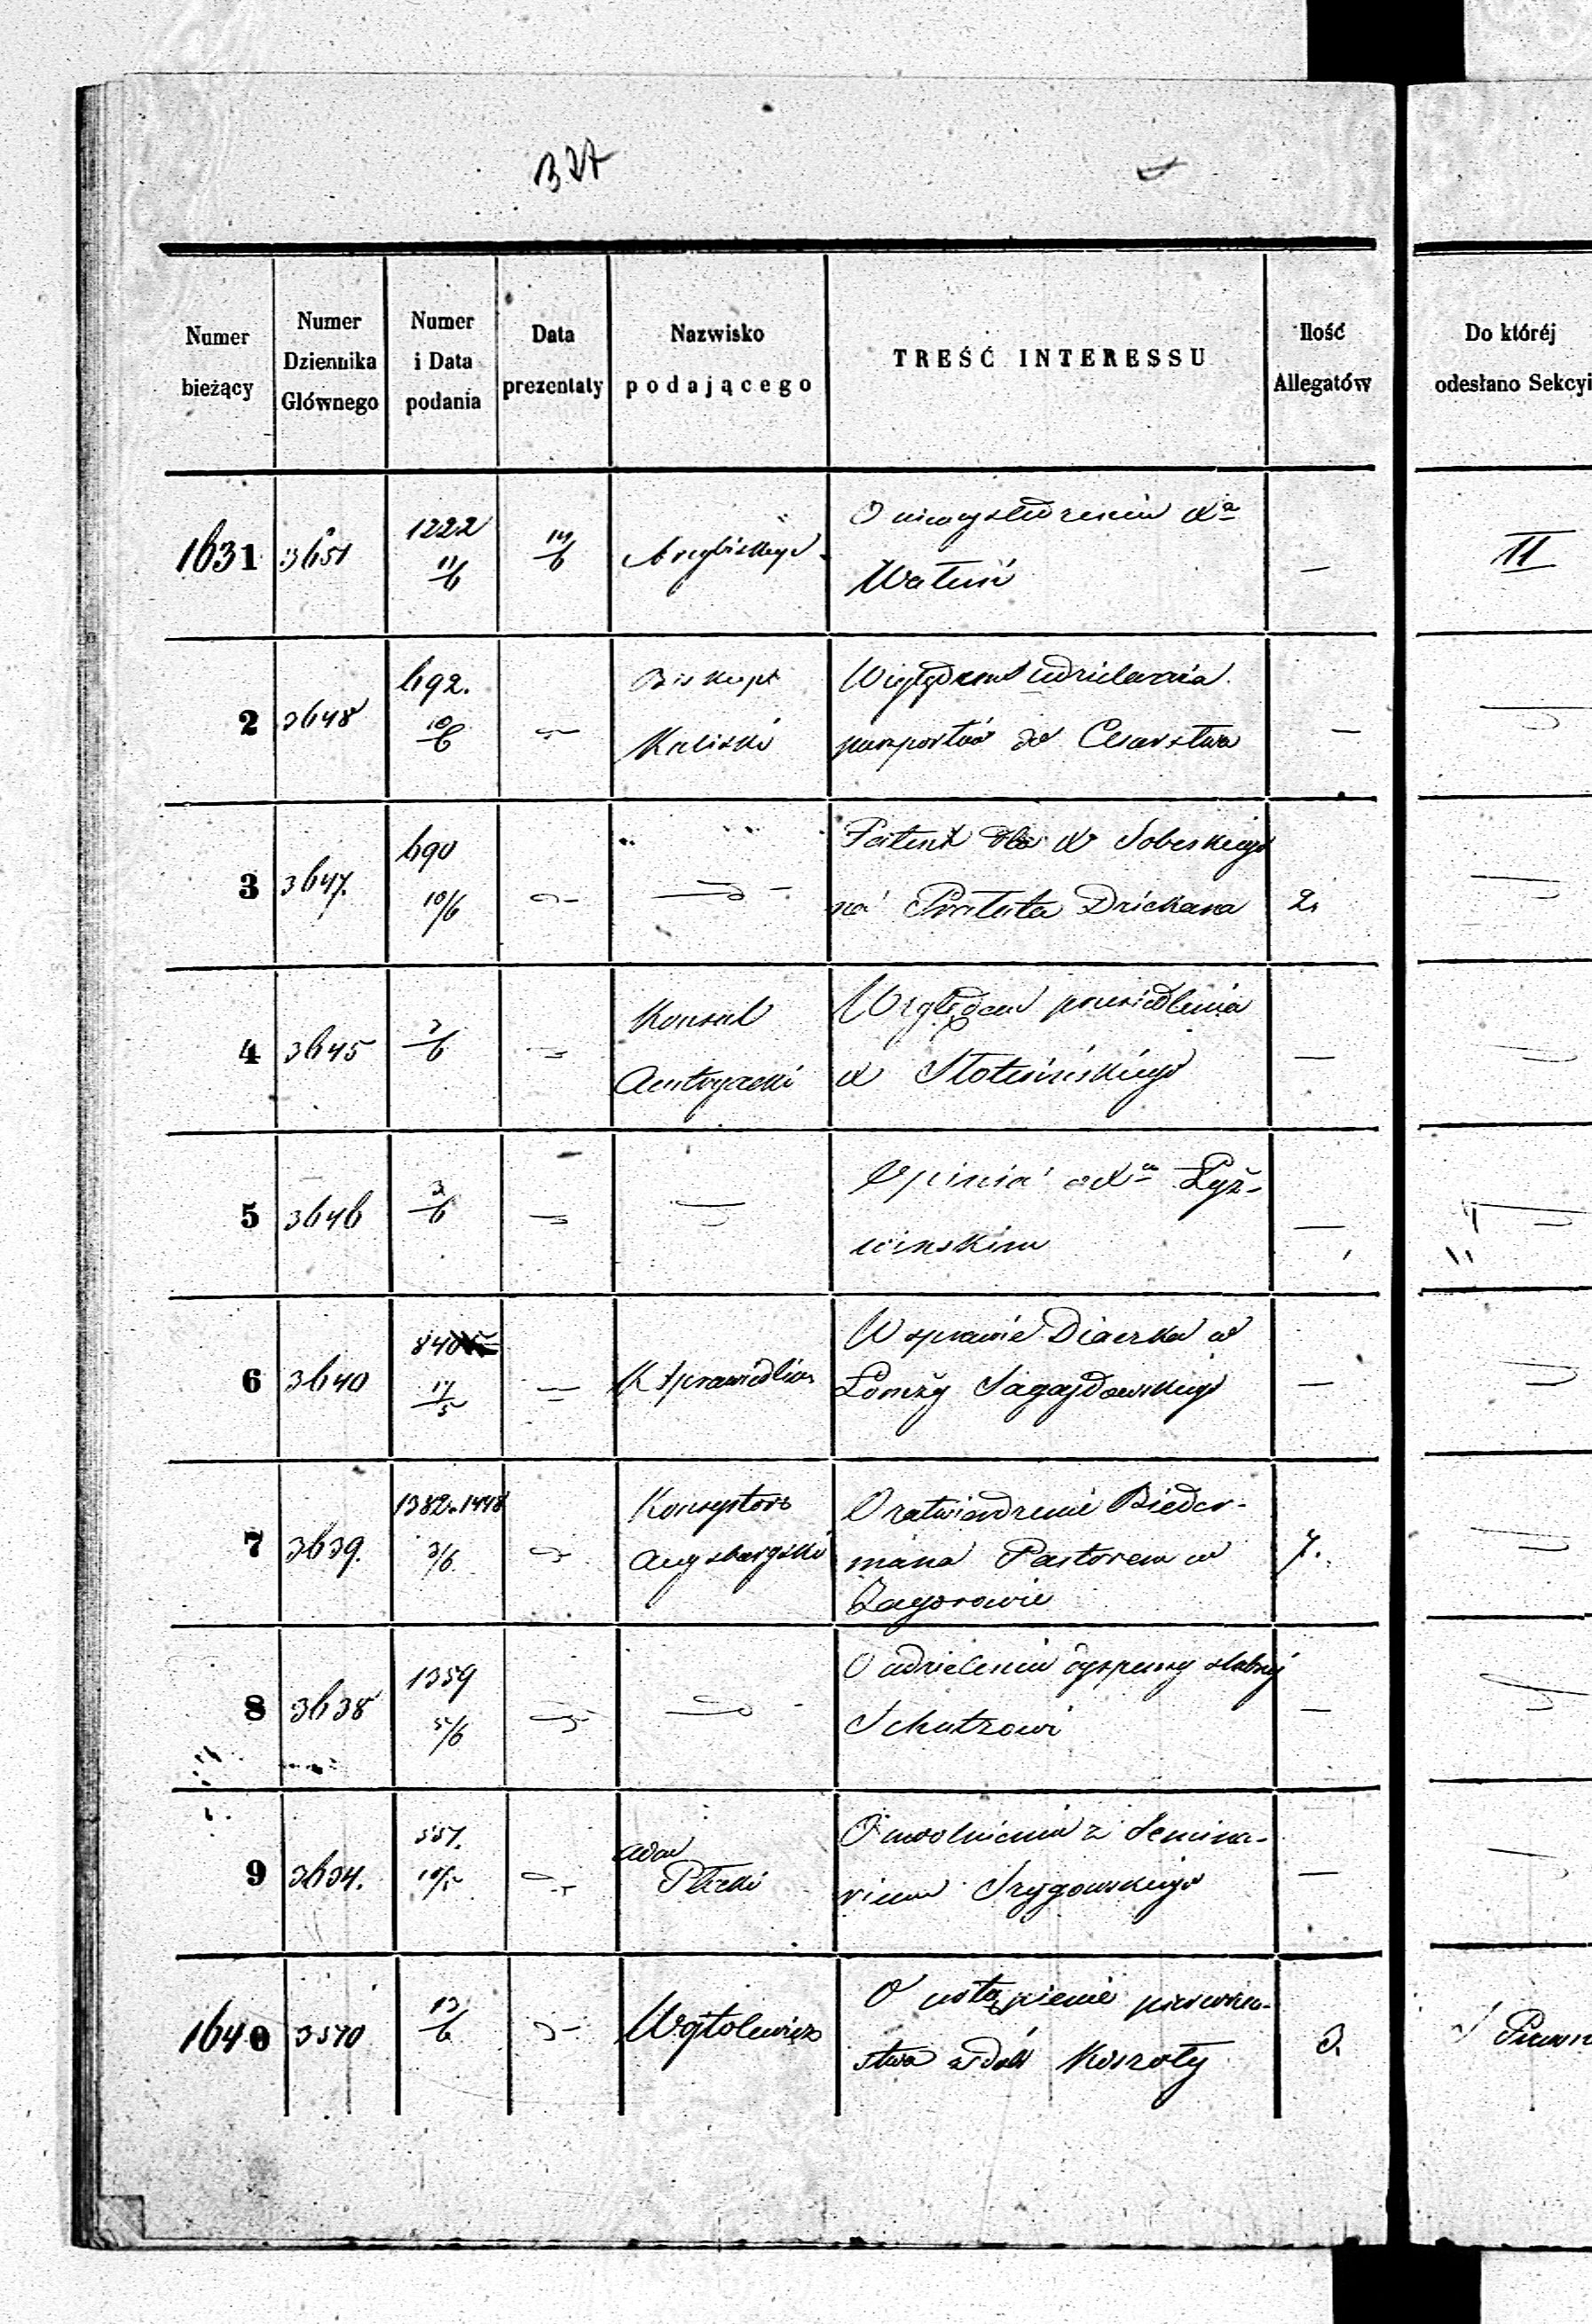 327
Numer bieżący
Numer Dziennika Głównego
Numer i Data podania
Data prezentaty
Nazwisko podającego
TREŚĆ INTERESSU
Ilość Allegatów
Do któréj odesłano Sekcyi
1631 3651 1222 11/6 14/6 Arcybiskup — II
O niewysledzeniu Xa
2 3648 692. 10/6 Biskup Kaliski —
Względem udzielania
paszportów do Cesarstwa
3 3647. 690 10/6 2.
Patent dla X Sobeskiego
na Prałata Dziekana
4 3645 3/6 Konsul Austryacki —
Względem przesiedlenia
X
5 3646 3/6 —
Opinia o Xu Łyż-
winskim
6 3640 840 17/5 K Sprawiedliw —
W sprawie Diaczka w
Łomży Sagajdowskiego
7 3639. 1382.1448 3/6. Konsystorz Augsburgski 7.
O zatwierdzenie Bieder-
mana Pastorem w
Zagorowie
8 3638 1359 5/6 —
O udzieleniu dyspensy ślubnej
Schutzowi
9 3634. 557. 10/5 Adm Płocki —
O uwolnieniu z Semina-
rium
1640 3570 13/6 Wojtolewicz 3.
O ustąpienie pierwszeń-
stwa